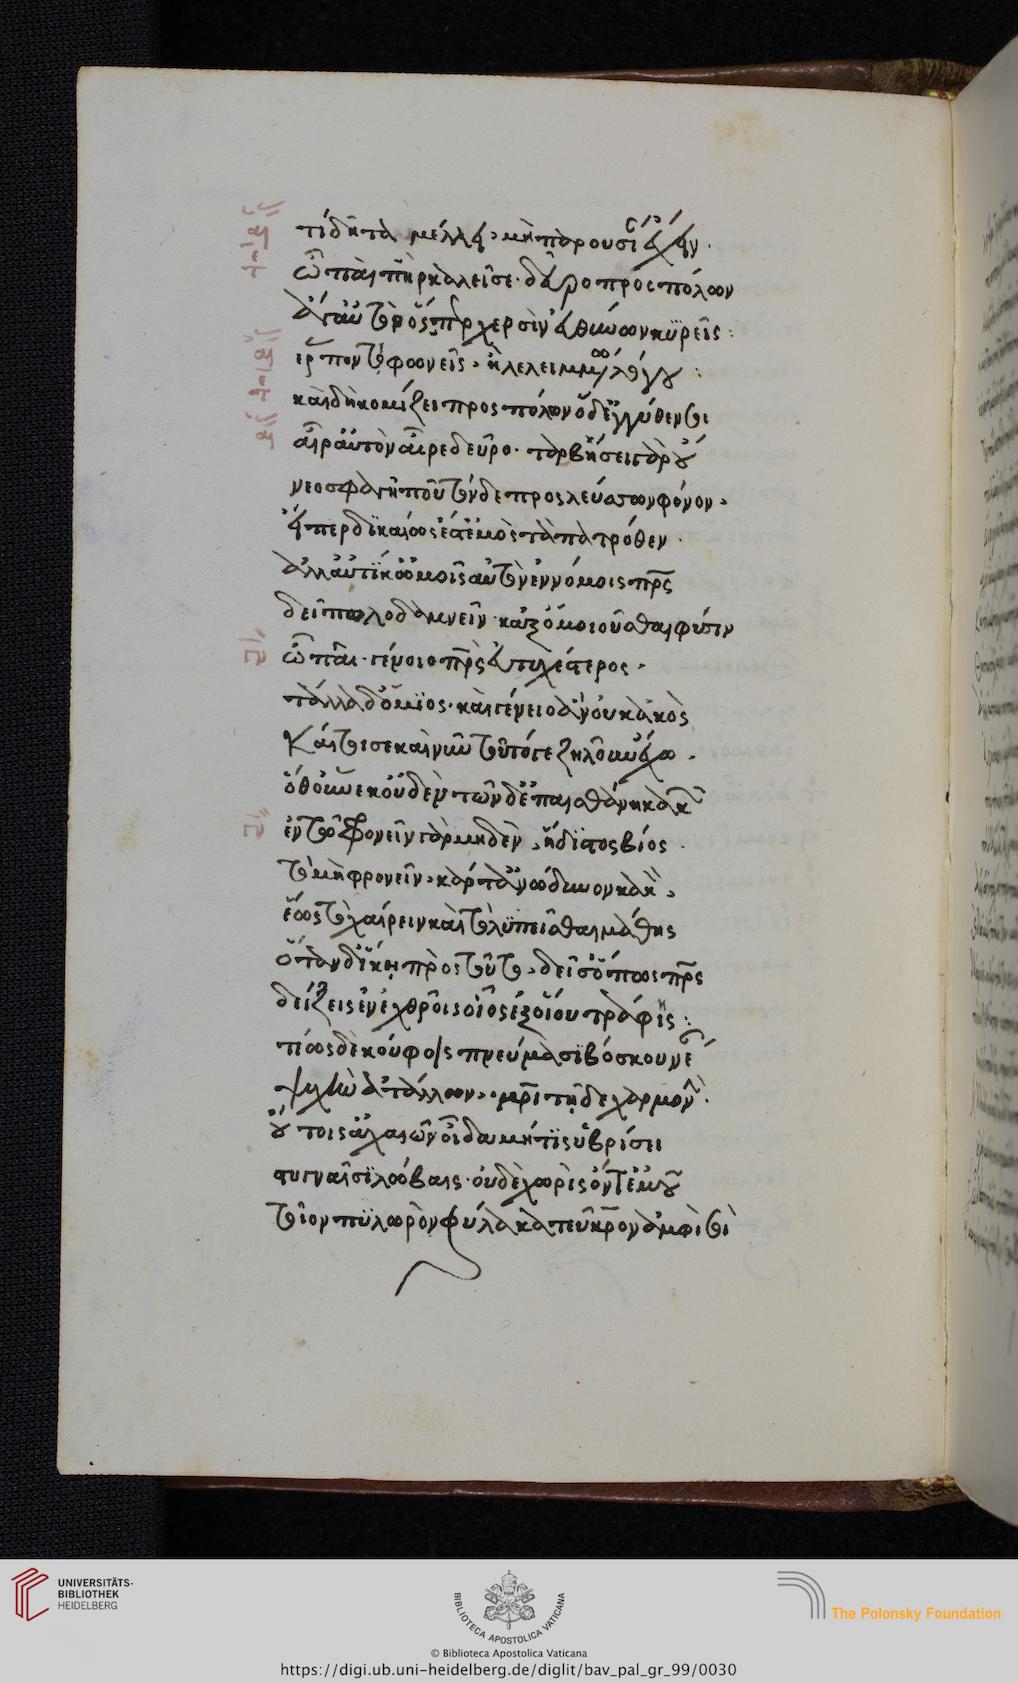 τί δῆτα μέλλει μὴ παρουσίαν ἔχειν.
ὦ παῖ πατὴρ καλεῖ σε. δεῦρο προσπόλων
ἄγ' αὐτὸν ὅσπερ χερσὶν εὐθύνων κυρεῖς:
ἕρποντι φωνεῖς, ἢ λελειμμένῳ λόγου:
καὶ δὴ κομίζει προσπόλων ὅδ' ἐγγύθεν τις
αἶρ' αὐτὸν αἶρε δεῦρο. ταρβήσει γὰρ οὔ
νεοσφαγῆ που τόνδε προσλεύσσων φόνον,
εἴπερ δικαίως ἔστ' ἐμὸς τὰ πατρόθεν.
ἀλλ' αὐτίκ' ὠμοῖς αὐτὸν ἐν νόμοις πατρὸς
δεῖ πωλοδαμνεῖν κἀξομοιοῦσθαι φύσιν
ὦ παῖ. γένοιο πατρὸς εὐτυχέστερος,
τὰ δ' ἄλλ' ὅμοιος. καὶ γένοι' ἂν οὐ κακὸς
καίτοι σε καὶ νῦν τοῦτό γε ζηλοῦν ἔχω.
ὁθούνεκ' οὐδὲν τῶνδ' ἐπαισθάνῃ κακῶν
ἐν τῷ φρονεῖν γὰρ μηδὲν, ἥδιστος βίος.
τὸ μὴ φρονεῖν, κάρτ' ἀνώδυνον κακόν,
ἕως τὸ χαίρειν καὶ τὸ λυπεῖσθαι μάθῃς
ὅταν δ' ἵκῃ πρὸς τοῦτο, δεῖ σ' ὅπως πατρὸς
δείξεις ἐν ἐχθροῖς οἷος ἐξ οἵου τράφης:
τέως δὲ κούφοις πνεύμασιν βόσκου νέαν
ψυχὴν ἀτάλλων, μητρὶ τῇδε χαρμονήν.
οὔτοι σ' ἀχαιῶν οἶδα μή τις ὑβρίσῃ
στυγναῖσι λώβαις. οὐδὲ χωρὶς ὄντ' ἐμοῦ
τοῖον πυλωρὸν φύλακα τεῦκρον ἀμφί σοι
UNIVERSITÄTS-
BIBLIOTHEK
HEIDELBERG
BIBLIOTECA APOSTOLICA VATICANA
The Polonsky Foundation
© Biblioteca Apostolica Vaticana
https://digi.ub.uni-heidelberg.de/diglit/bav_pal_gr_99/0030